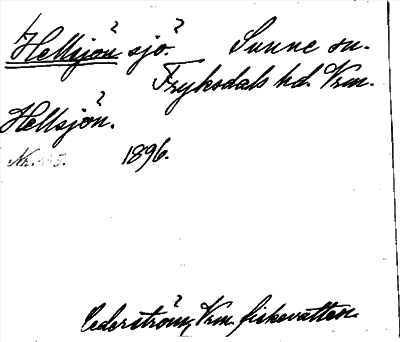 Hellsjön sjö. Sunne sn.
Fryksdals hd. Vrm.
Hellsjön.
1896.
Cederström, Vrm. fiskevatten.